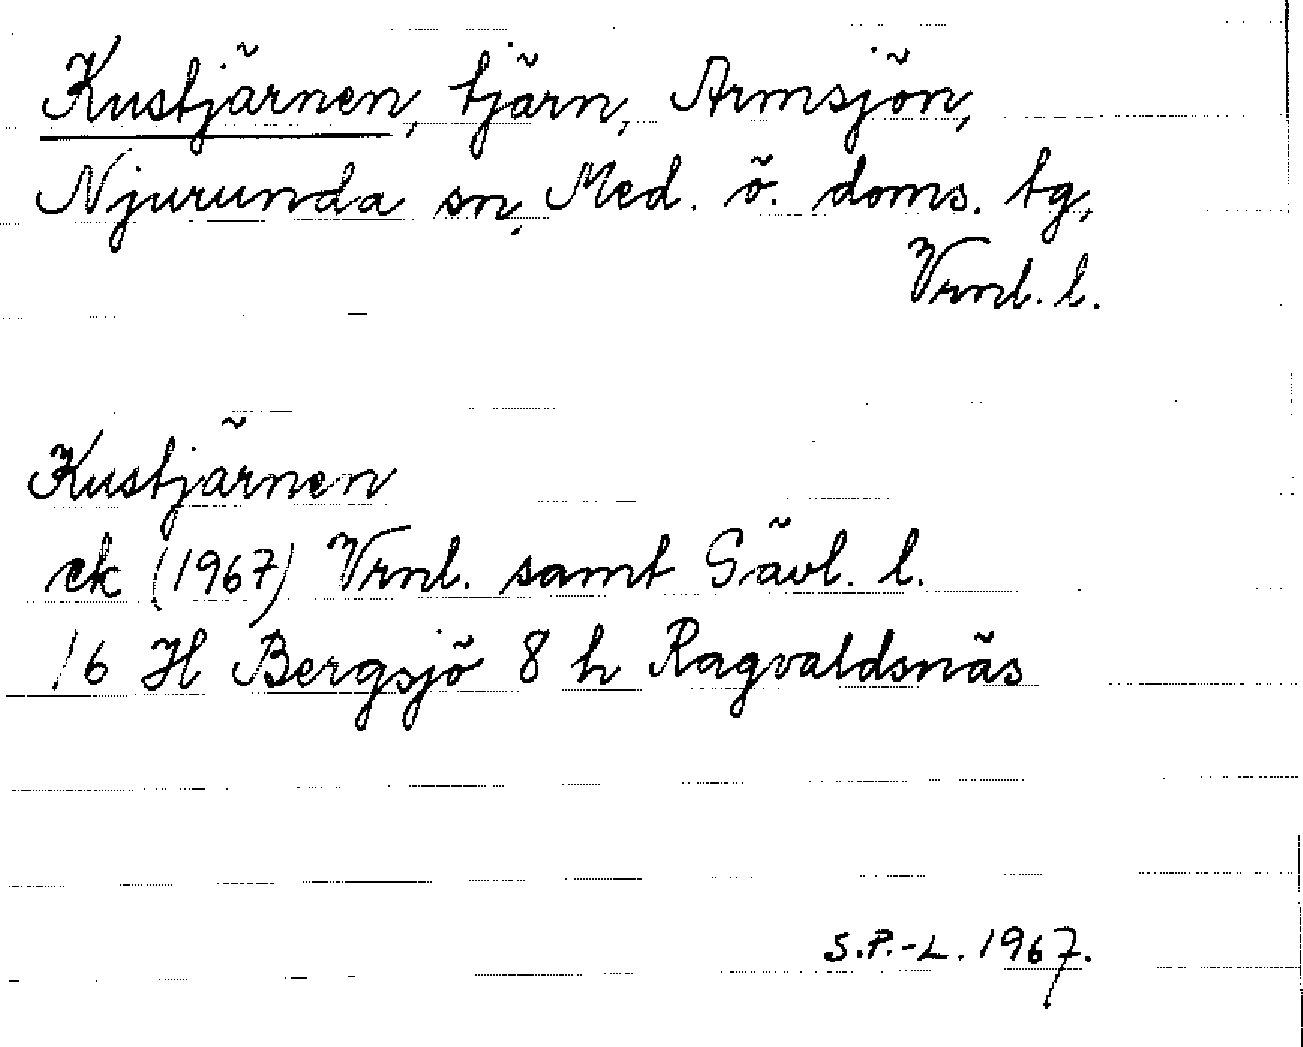 Kustjärnen, tjärn, Armsjön,
Njurunda sn, Med. ö. doms. tg,
Vrnl. l.
Kustjärnen
ek (1967) Vrnl. samt Gävl. l.
16 H Bergsjö 8 h Ragvaldsnäs
S.P.-L. 1967.